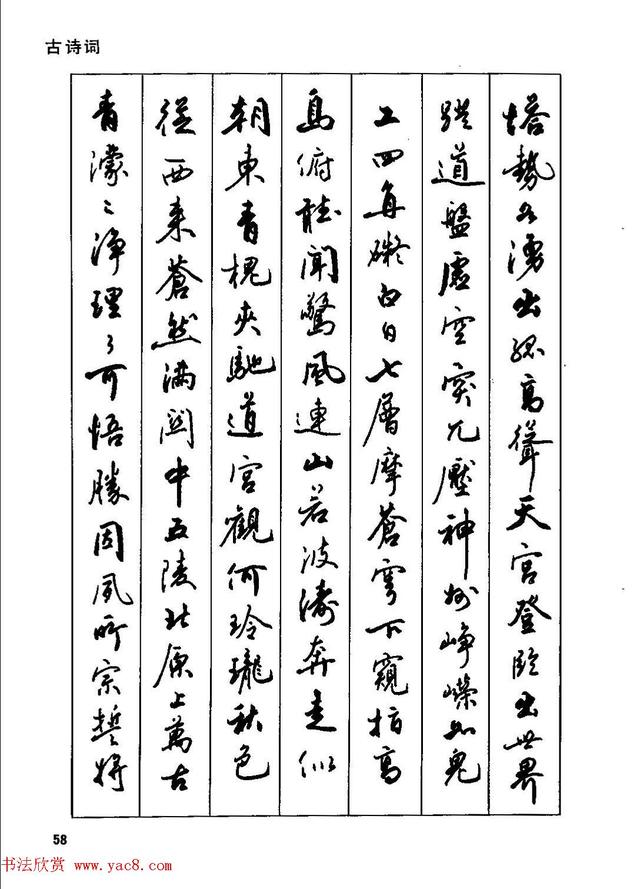 古诗词
塔勢如湧出孤高聳天宮登臨出世界
蹬道盤虛空突兀壓神州崢嶸如鬼
工四角礙白日七層摩蒼穹下窺指高
鳥俯聽聞驚風連山若波濤奔走似
朝東青槐夾馳道宮觀何玲瓏秋色
從西來蒼然滿關中五陵北原上萬古
青濛〻淨理了可悟勝因夙所宗誓將
58
书法欣赏 www.yac8.com